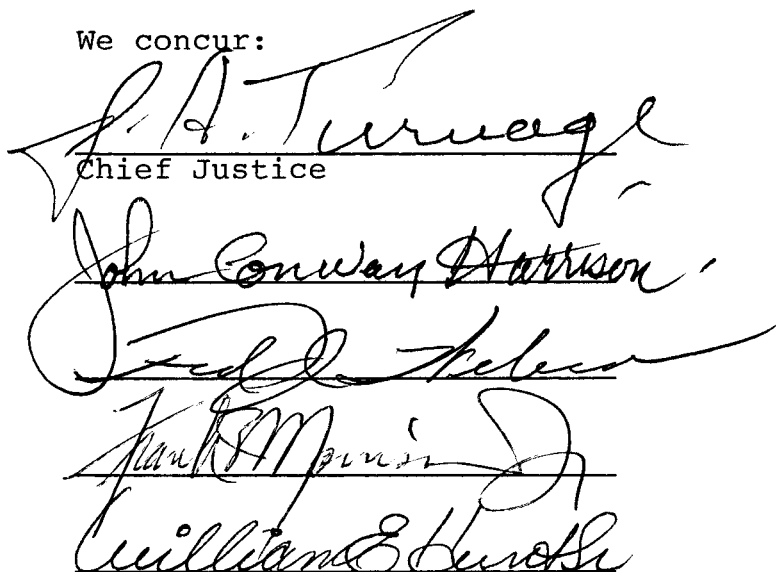 We concur:
J. A. Turnage
Chief Justice
John Conway Harrison
Fred J. Weber
Frank B. Morrison Jr
William E. Hunt Sr